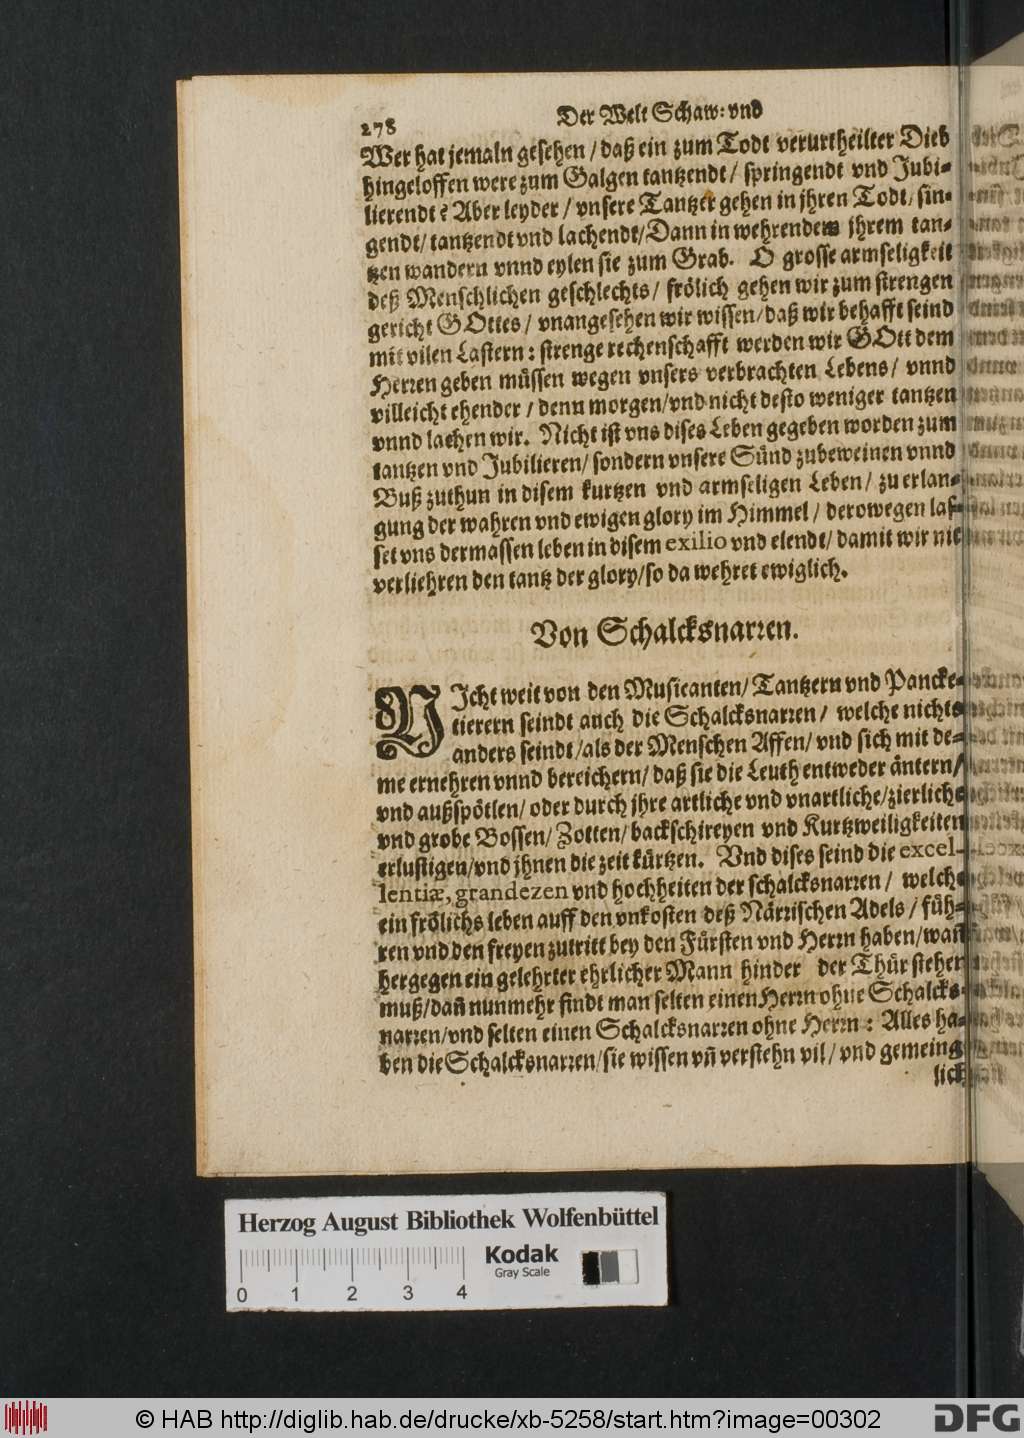 278
Der Welt Schaw: vnd
Wer hat jemaln gesehen / daß ein zum Todt verurtheilter Dieb
hingeloffen were zum Galgen tantzendt / springendt vnd Jubi-
lierendt? Aber leyder / vnsere Tantzer gehen in jhren Todt / sin-
gendt / tantzendt vnd lachendt / Dann in wehrendem jhrem tan-
tzen wandern vnnd eylen sie zum Grab. O grosse armseligkeit
deß Menschlichen geschlechts / frölich gehen wir zum strengen
gericht GOttes / vnangesehen wir wissen / daß wir behafft seind
mit vilen Lastern: strenge rechenschafft werden wir GOtt dem
Herren geben müssen wegen vnsers verbrachten Lebens / vnnd
villeicht ehender / denn morgen / vnd nicht desto weniger tantzen
vnnd lachen wir. Nicht ist vns dises Leben gegeben worden zum
tantzen vnd Jubilieren / sondern vnsere Sünd zubeweinen vnnd
Buß zuthun in disem kurtzen vnd armseligen Leben / zu erlan-
gung der wahren vnd ewigen glory im Himmel / derowegen las-
set vns dermassen leben in disem exilio vnd elendt / damit wir nit
verliehren den tantz der glory / so da wehret ewiglich.
Von Schalcksnarren.
NIcht weit von den Musicanten / Tantzern vnd Pancke-
tierern seindt auch die Schalcksnarren / welche nichts
anders seindt / als der Menschen Affen / vnd sich mit de-
me ernehren vnnd bereichern / daß sie die Leuth entweder äntern /
vnd außspötlen / oder durch jhre artliche vnd vnartliche / zierliche
vnd grobe Bossen / Zotten / backschireyen vnd Kurtzweiligkeiten
erlustigen / vnd jhnen die zeit kürtzen. Vnd dises seind die excel-
lentiæ, grandezen vnd hochheiten der schalcksnarren / welche
ein frölichs leben auff den vnkosten deß Närrischen Adels / füh-
ren vnd den freyen zutritt bey den Fürsten vnd Herrn haben / wañ
hergegen ein gelehrter ehrlicher Mann hinder der Thür stehen
muß / dañ nunmehr findt man selten einen Herrn ohne Schalcks-
narren / vnd selten einen Schalcksnarren ohne Herrn: Alles ha-
ben die Schalcksnarren / sie wissen vñ verstehn vil / vnd gemeing-
lich
Herzog August Bibliothek Wolfenbüttel
Kodak
Gray Scale
0 1 2 3 4
© HAB http://diglib.hab.de/drucke/xb-5258/start.htm?image=00302
DFG